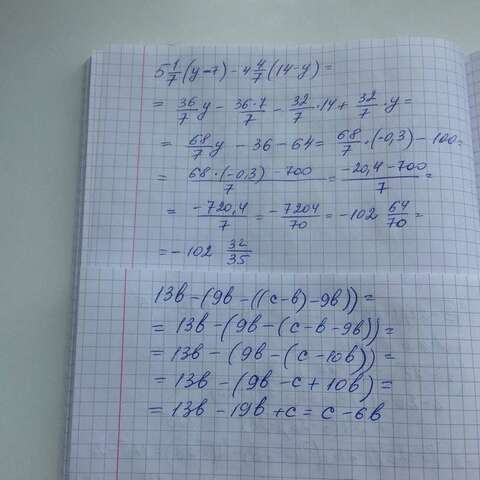 5 1/7 (y-7) - 4 4/7 (14-y) =
= 36/7 y - 36·7/7 - 32/7 · 14 + 32/7 · y =
= 68/7 y - 36 - 64 = 68/7 · (-0,3) - 100 =
= 68·(-0,3) - 700/7 = -20,4 - 700/7 =
= -720,4/7 = -7204/70 = -102 64/70 =
= -102 32/35
13в - (9в - ((с-в) - 9в)) =
= 13в - (9в - (с - в - 9в)) =
= 13в - (9в - (с - 10в)) =
= 13в - (9в - с + 10в) =
= 13в - 19в + с = с - 6в